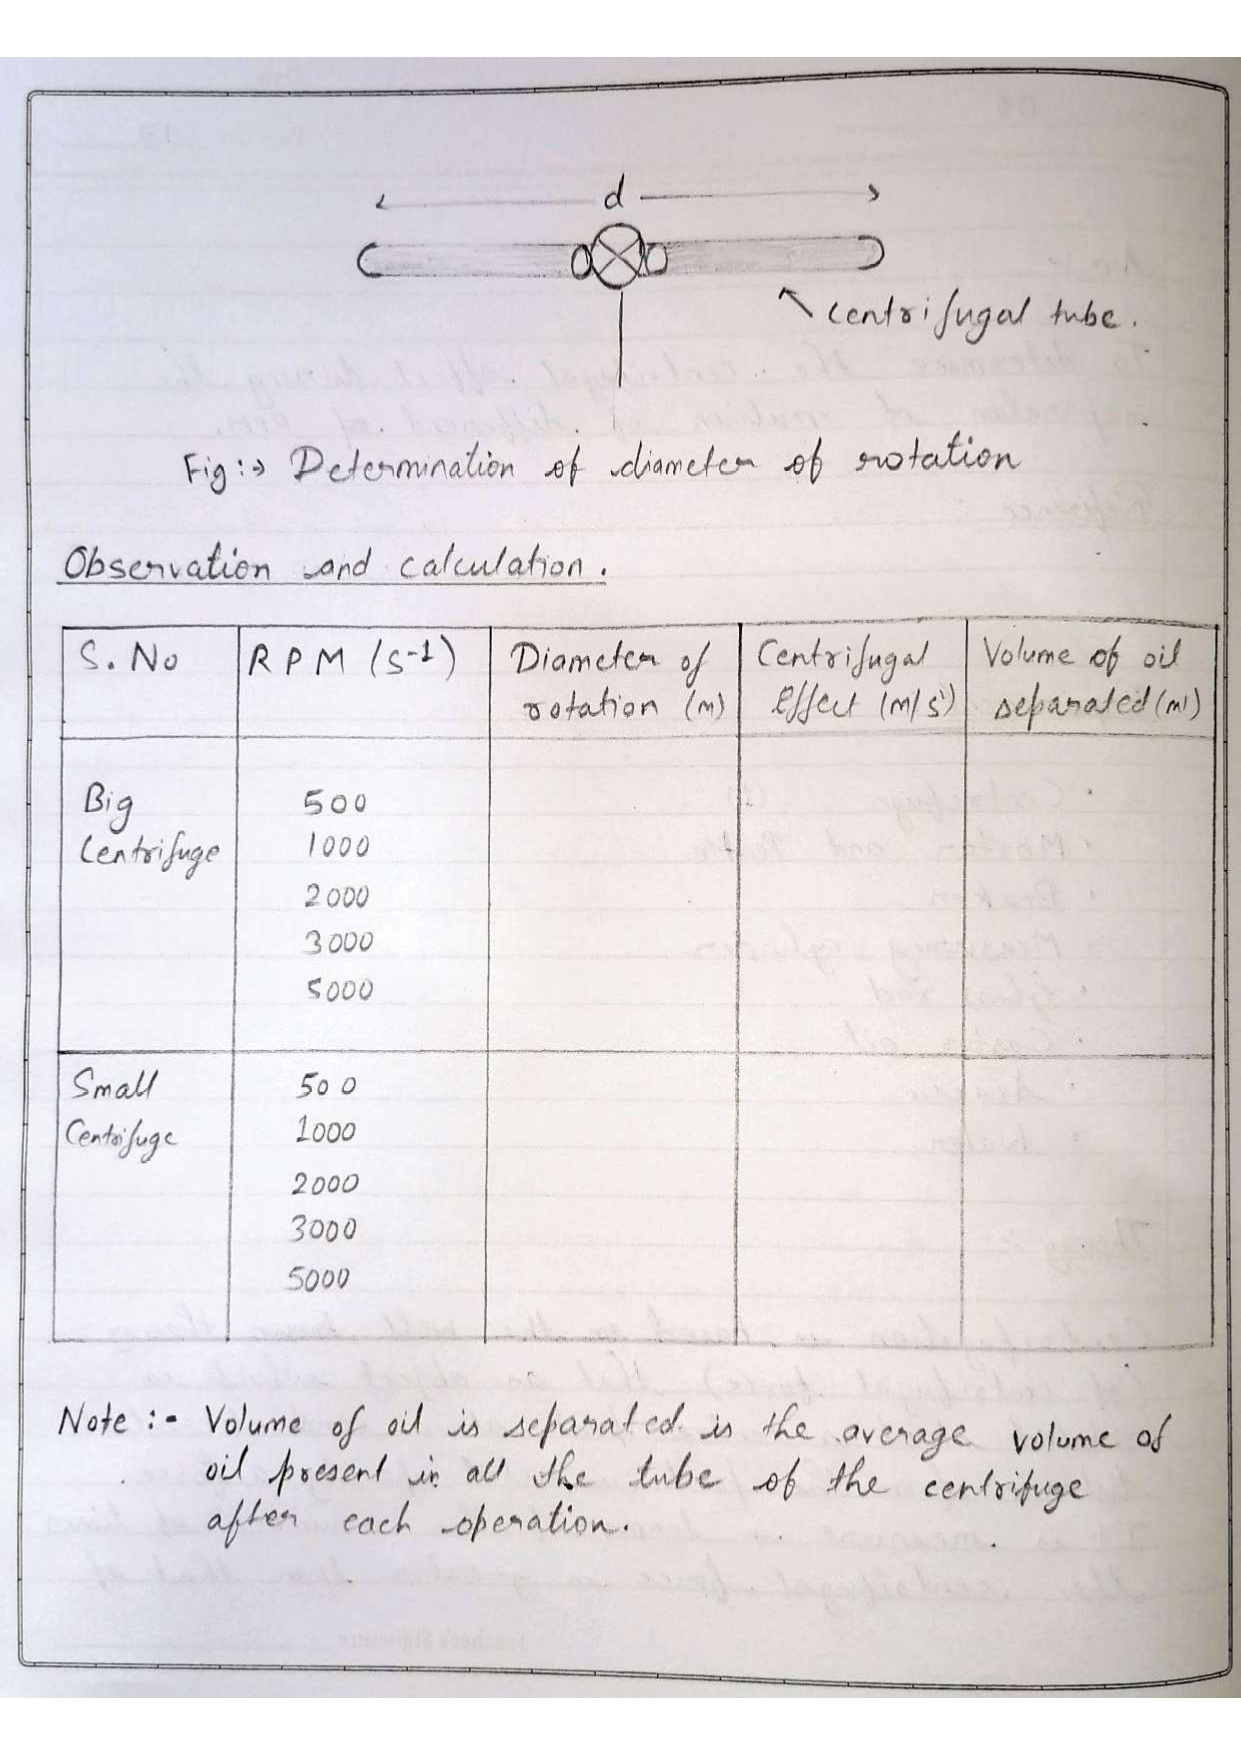 d
centrifugal tube.
Fig:→ Determination of diameter of rotation
Observation and calculation.
S. No
RPM (s-1)
Diameter of
rotation (m)
Centrifugal
Effect (m/s')
Volume of oil
separated (ml)
Big
Centrifuge
500
1000
2000
3000
5000
Small
Centrifuge
500
1000
2000
3000
5000
Note :- Volume of oil is separated is the average volume of
oil present in all the tube of the centrifuge
after each operation.